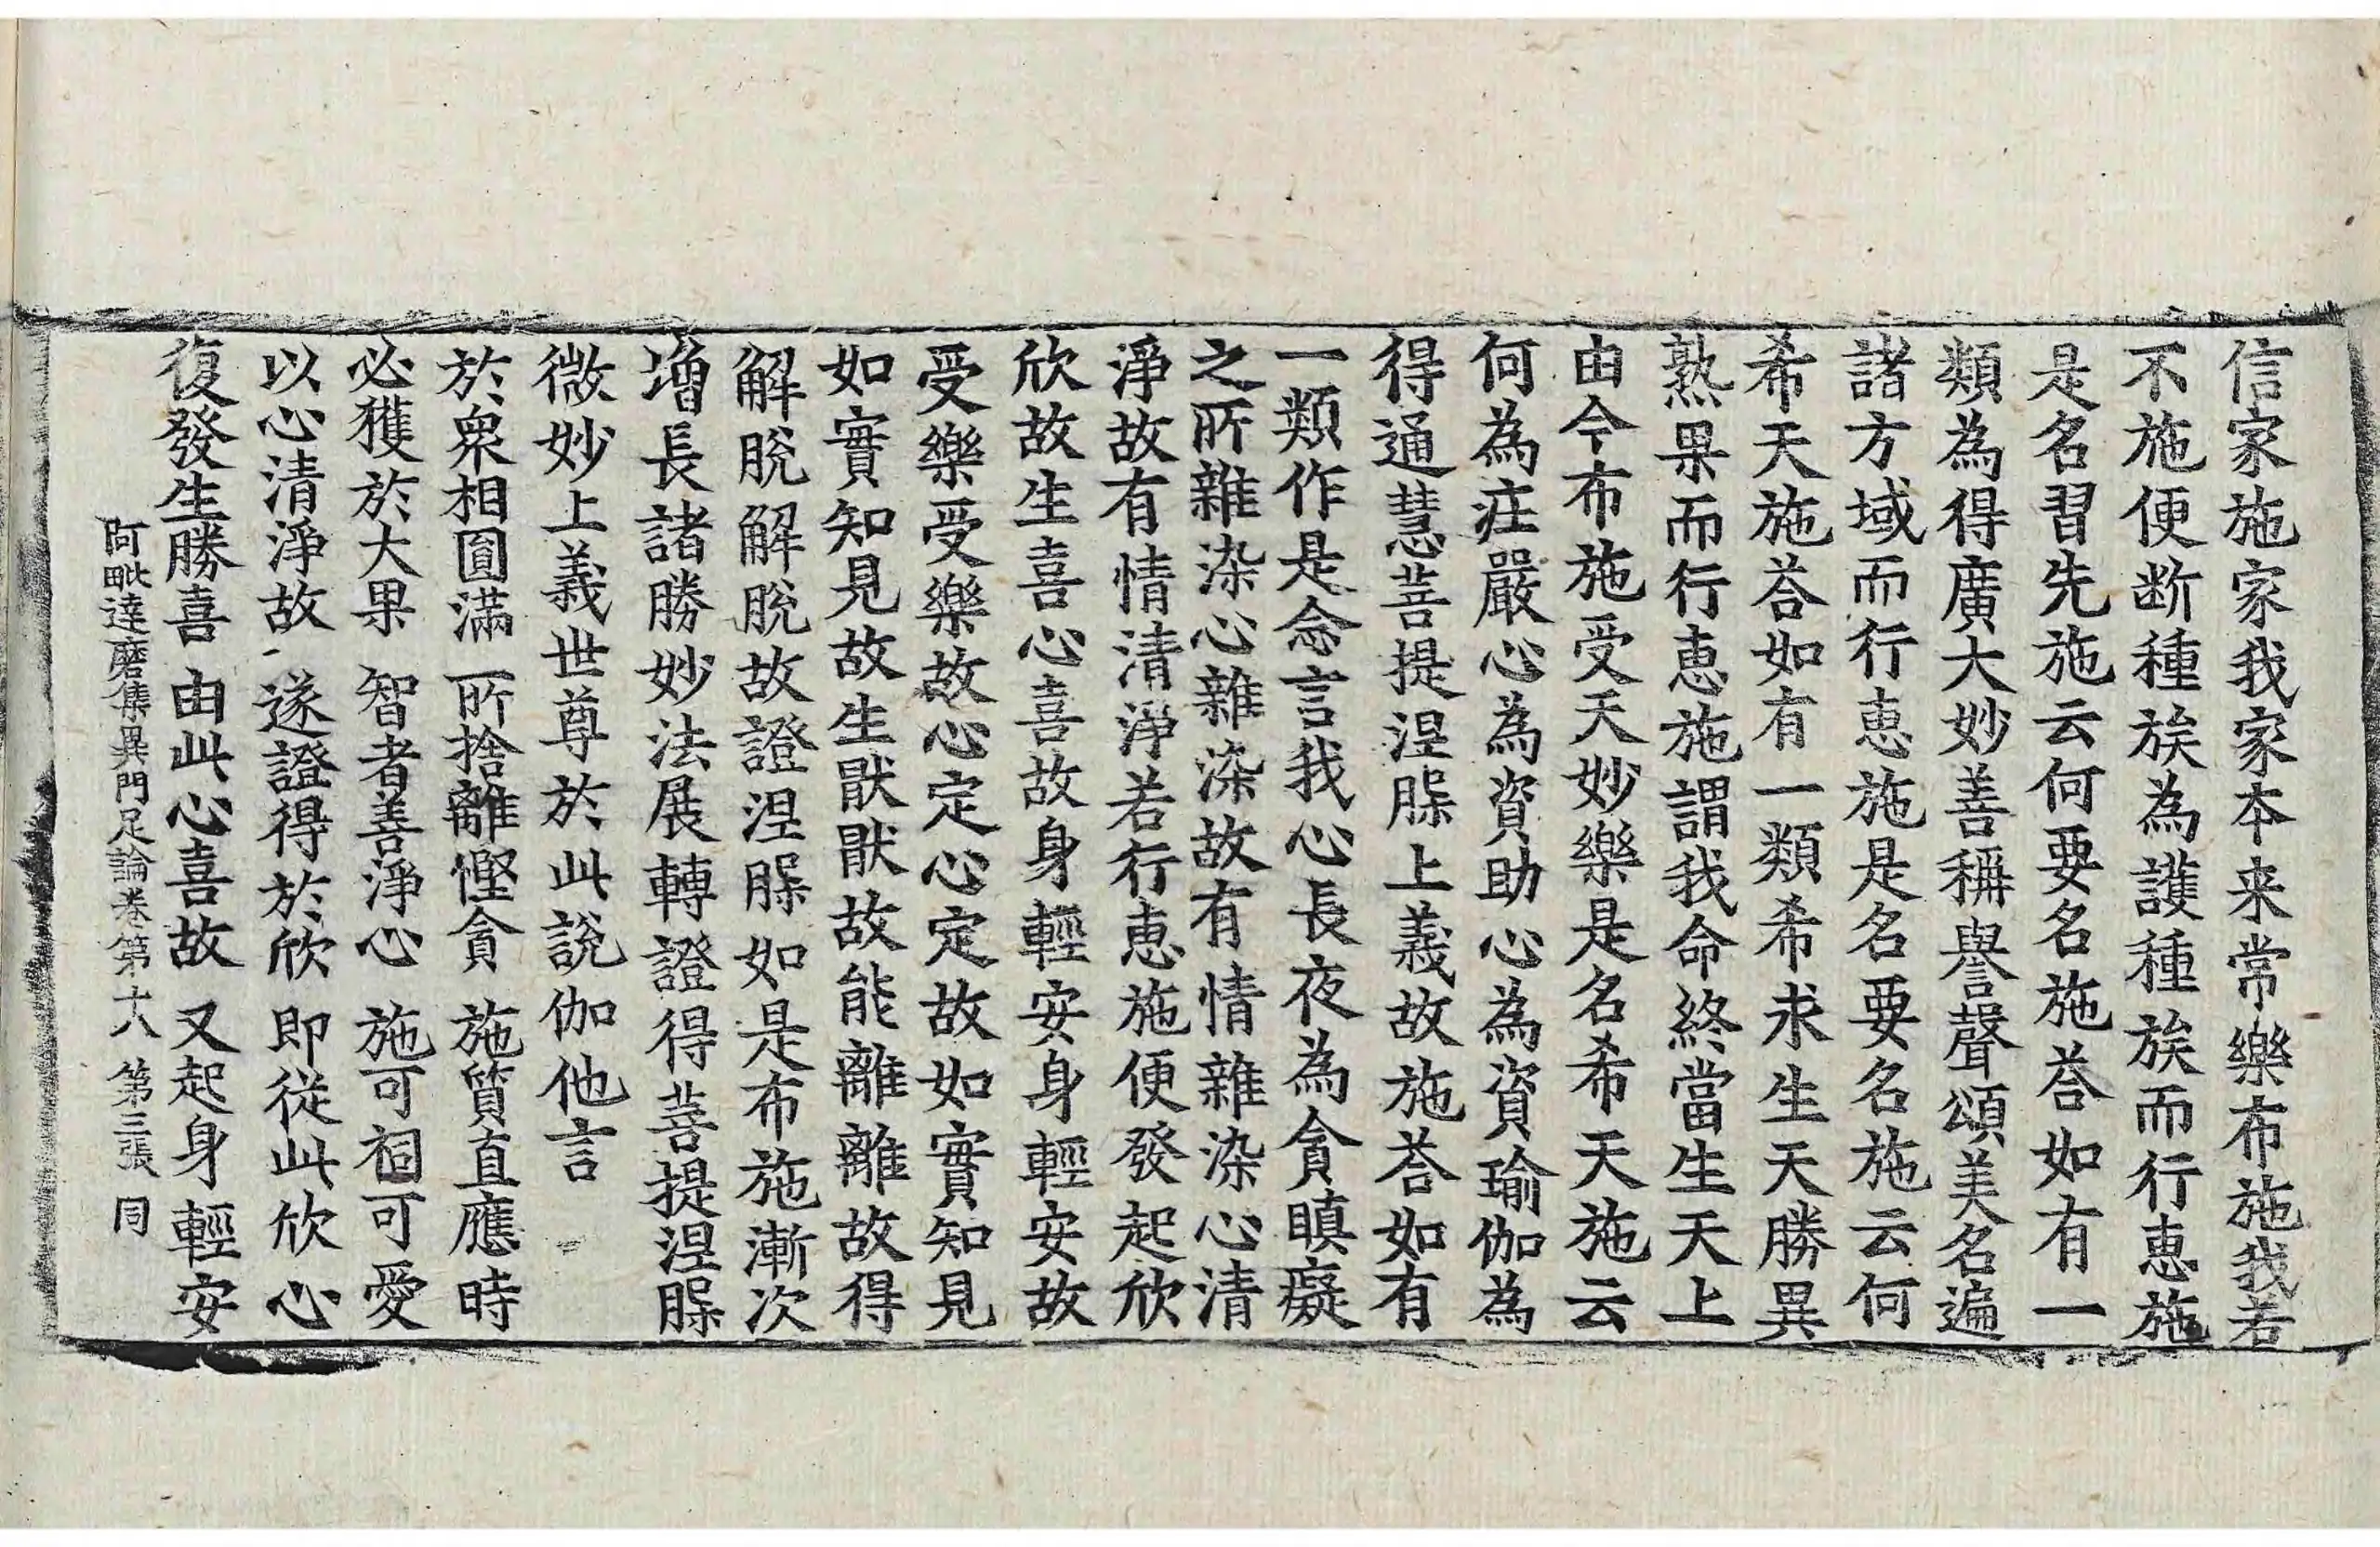 信家施家我家本来常樂布施我若
不施便断種族為護種族而行恵施
是名習先施云何要名施荅如有一
類為得廣大妙善稱譽聲頌美名遍
諸方域而行恵施是名要名施云何
希天施荅如有一類希求生天勝異
熟果而行恵施謂我命終當生天上
由今布施受天妙樂是名希天施云
何為莊嚴心為資助心為資瑜伽為
得通慧菩提涅槃上義故施荅如有
一類作是念言我心長夜為貪瞋癡
之所雜染心雜染故有情雜染心清
淨故有情清淨若行恵施便發起欣
欣故生喜心喜故身輕安身輕安故
受樂受樂故心定心定故如實知見
如實知見故生猒猒故能離離故得
解脫解脫故證涅槃如是布施漸次
增長諸勝妙法展轉證得菩提涅槃
微妙上義世尊於此說伽他言
於衆相圓滿　所捨離慳貪　施質直應時
必獲於大果　智者善淨心　施可祠可愛
以心清淨故　遂證得於欣　即從此欣心
復發生勝喜　由此心喜故　又起身輕安
阿毗達磨集異門足論卷第十八　第三張　同